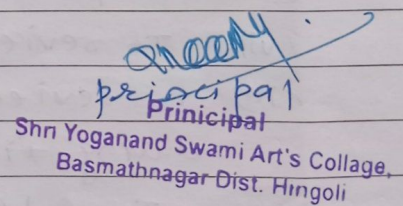 principal
Prinicipal
Shri Yoganand Swami Art's Collage,
Basmathnagar Dist. Hingoli